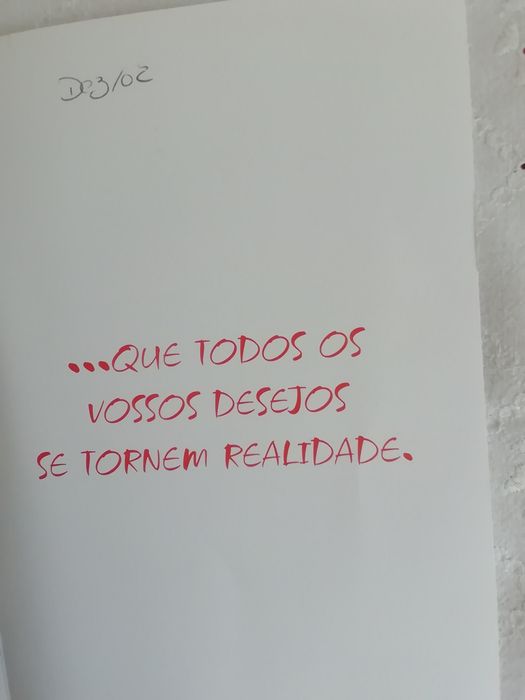 Dez/02
...QUE TODOS OS
VOSSOS DESEJOS
SE TORNEM REALIDADE.